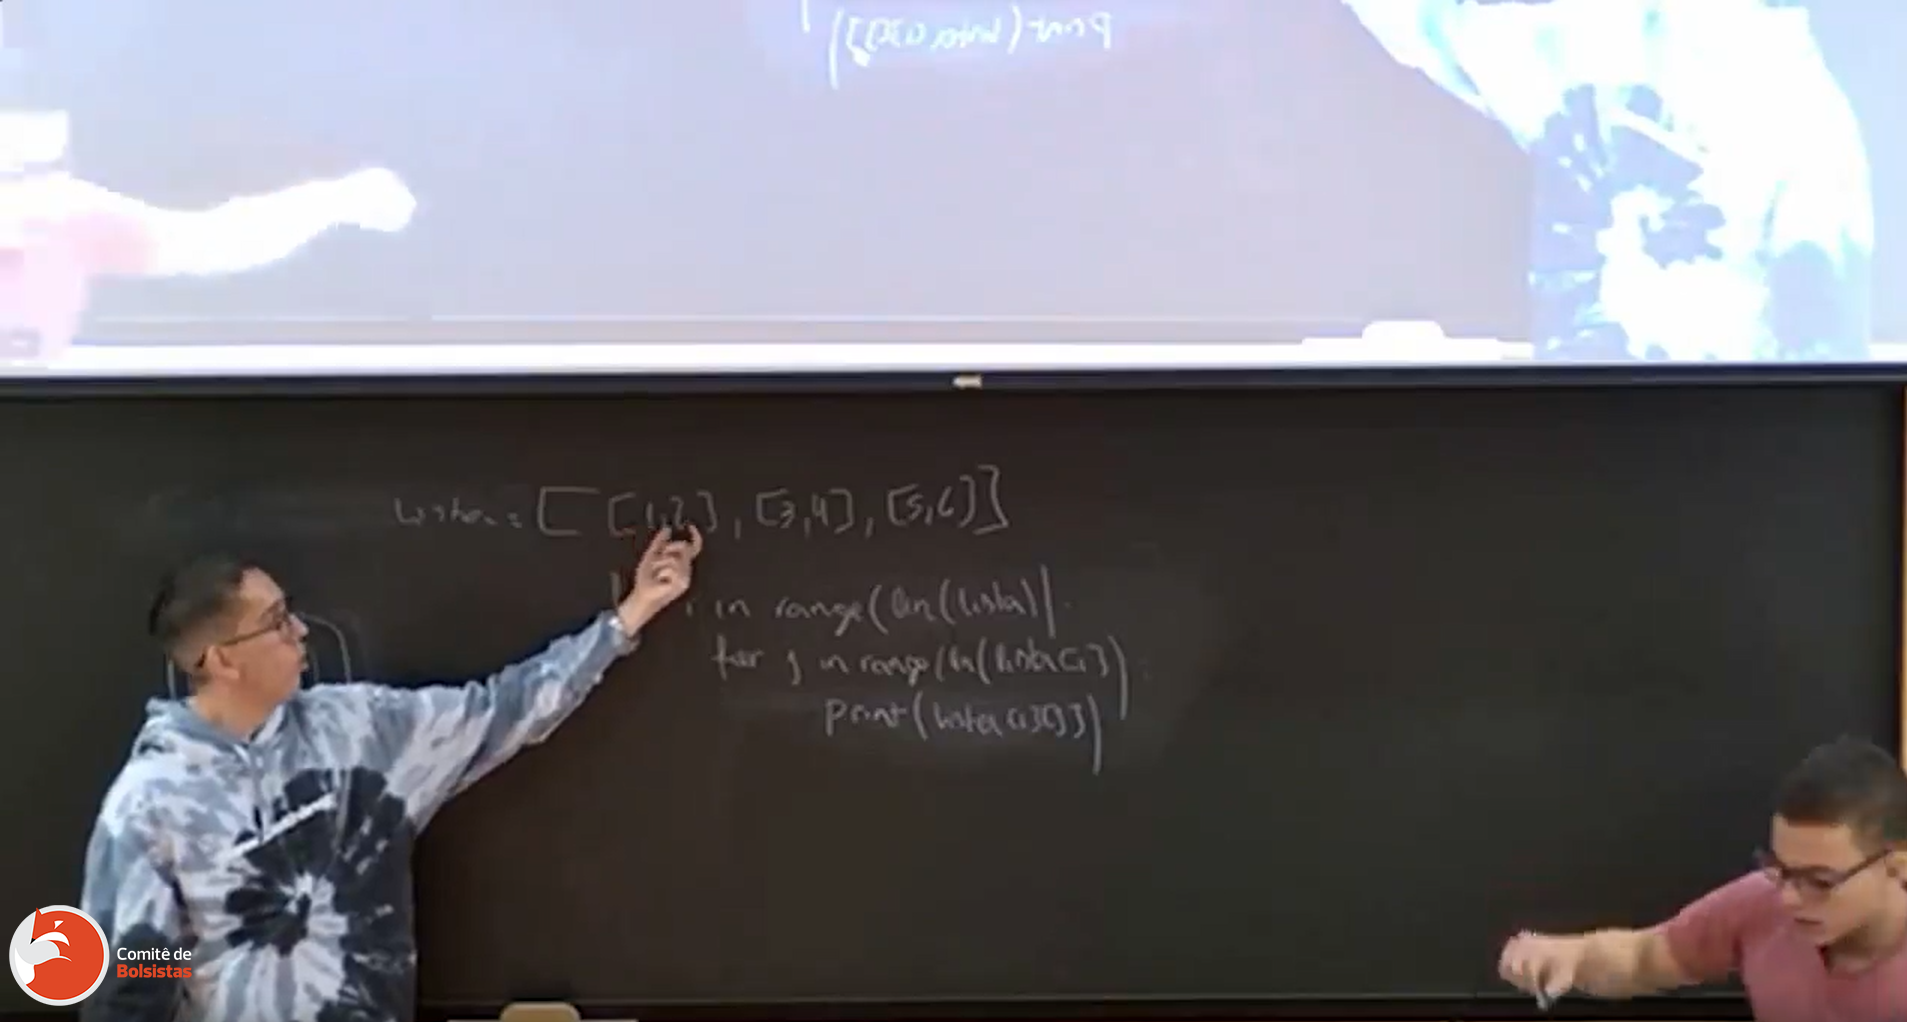 print(lista[i][j])
lista = [ [1,2], [3,4], [5,6]]
i in range(len(lista)
for j in range(len(lista[i])
print(lista[i][j])
Comitê de
Bolsistas